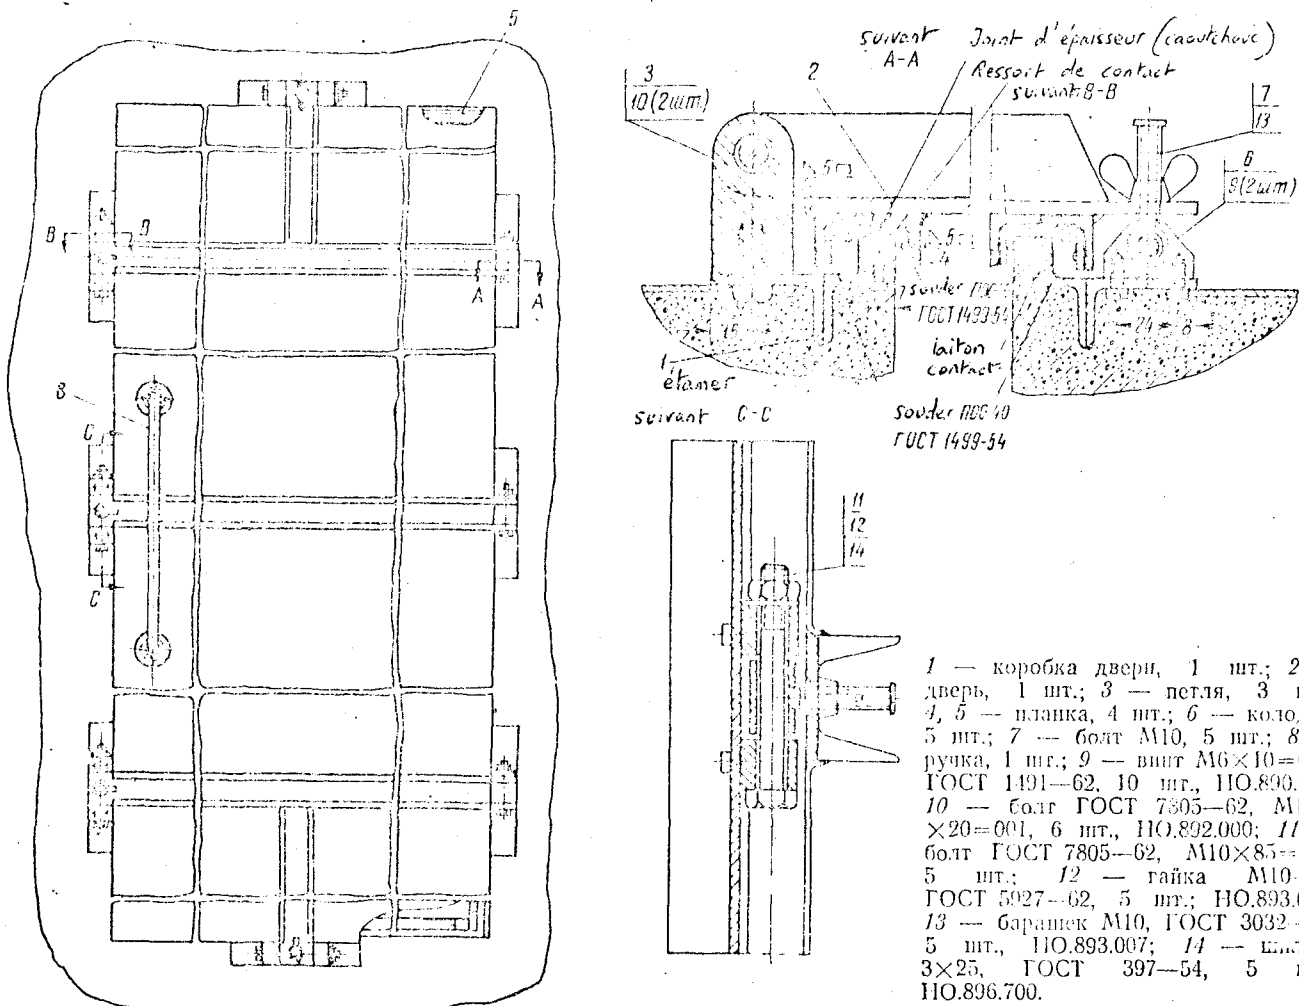 5
suivant
A-A
Joint d'épaisseur (caoutchouc)
Ressort de contact
suivant B-B
3
10 (2шт)
2
7
13
6
9 (2шт)
Б
Б
4
B
B
A
A
souder ПОС
ГОСТ 1499-54
15
24
8
1
étamer
laiton
contact
souder ПОС 40
ГОСТ 1499-54
suivant C-C
8
C
C
11
12
14
1 — коробка двери, 1 шт.; 2
дверь, 1 шт.; 3 — петля, 3
4, 5 — планка, 4 шт.; 6 — коло
5 шт.; 7 — болт М10, 5 шт.; 8
ручка, 1 шт.; 9 — винт М6×10=
ГОСТ 1491—62, 10 шт., НО.890.
10 — болт ГОСТ 7805—62, М
×20=001, 6 шт., НО.892.000; 11
болт ГОСТ 7805—62, М10×85=
5 шт.; 12 — гайка М10
ГОСТ 5927—62, 5 шт.; НО.893.
13 — барашек М10, ГОСТ 3032
5 шт., НО.893.007; 14 —
3×25, ГОСТ 397—54, 5
НО.896.700.